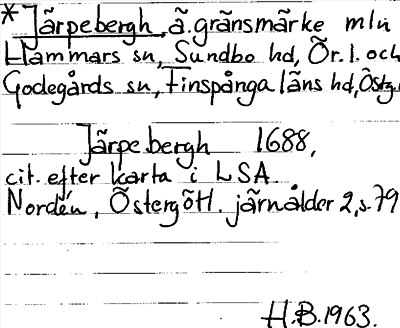 * Järpebergh, ä.gränsmärke mln
Hammars sn, Sundbo hd, Ör.l. och
Godegårds sn, Finspånga läns hd, Östg
Järpebergh 1688,
cit. efter karta i LSA.
Nordén, Östergötl. järnålder 2, s. 79
H.B. 1963.